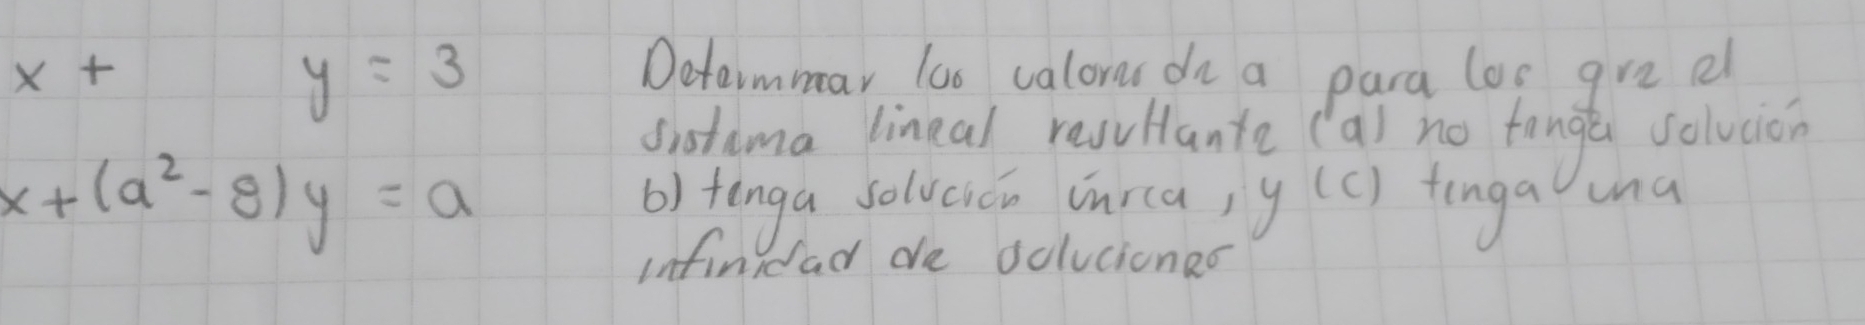 x + y = 3
x + (a² - 8) y = a
Determinar los valores de a para los que el
sistema lineal resultante (a) no tenga solución
b) tenga solución única, y (c) tenga una
infinidad de soluciones